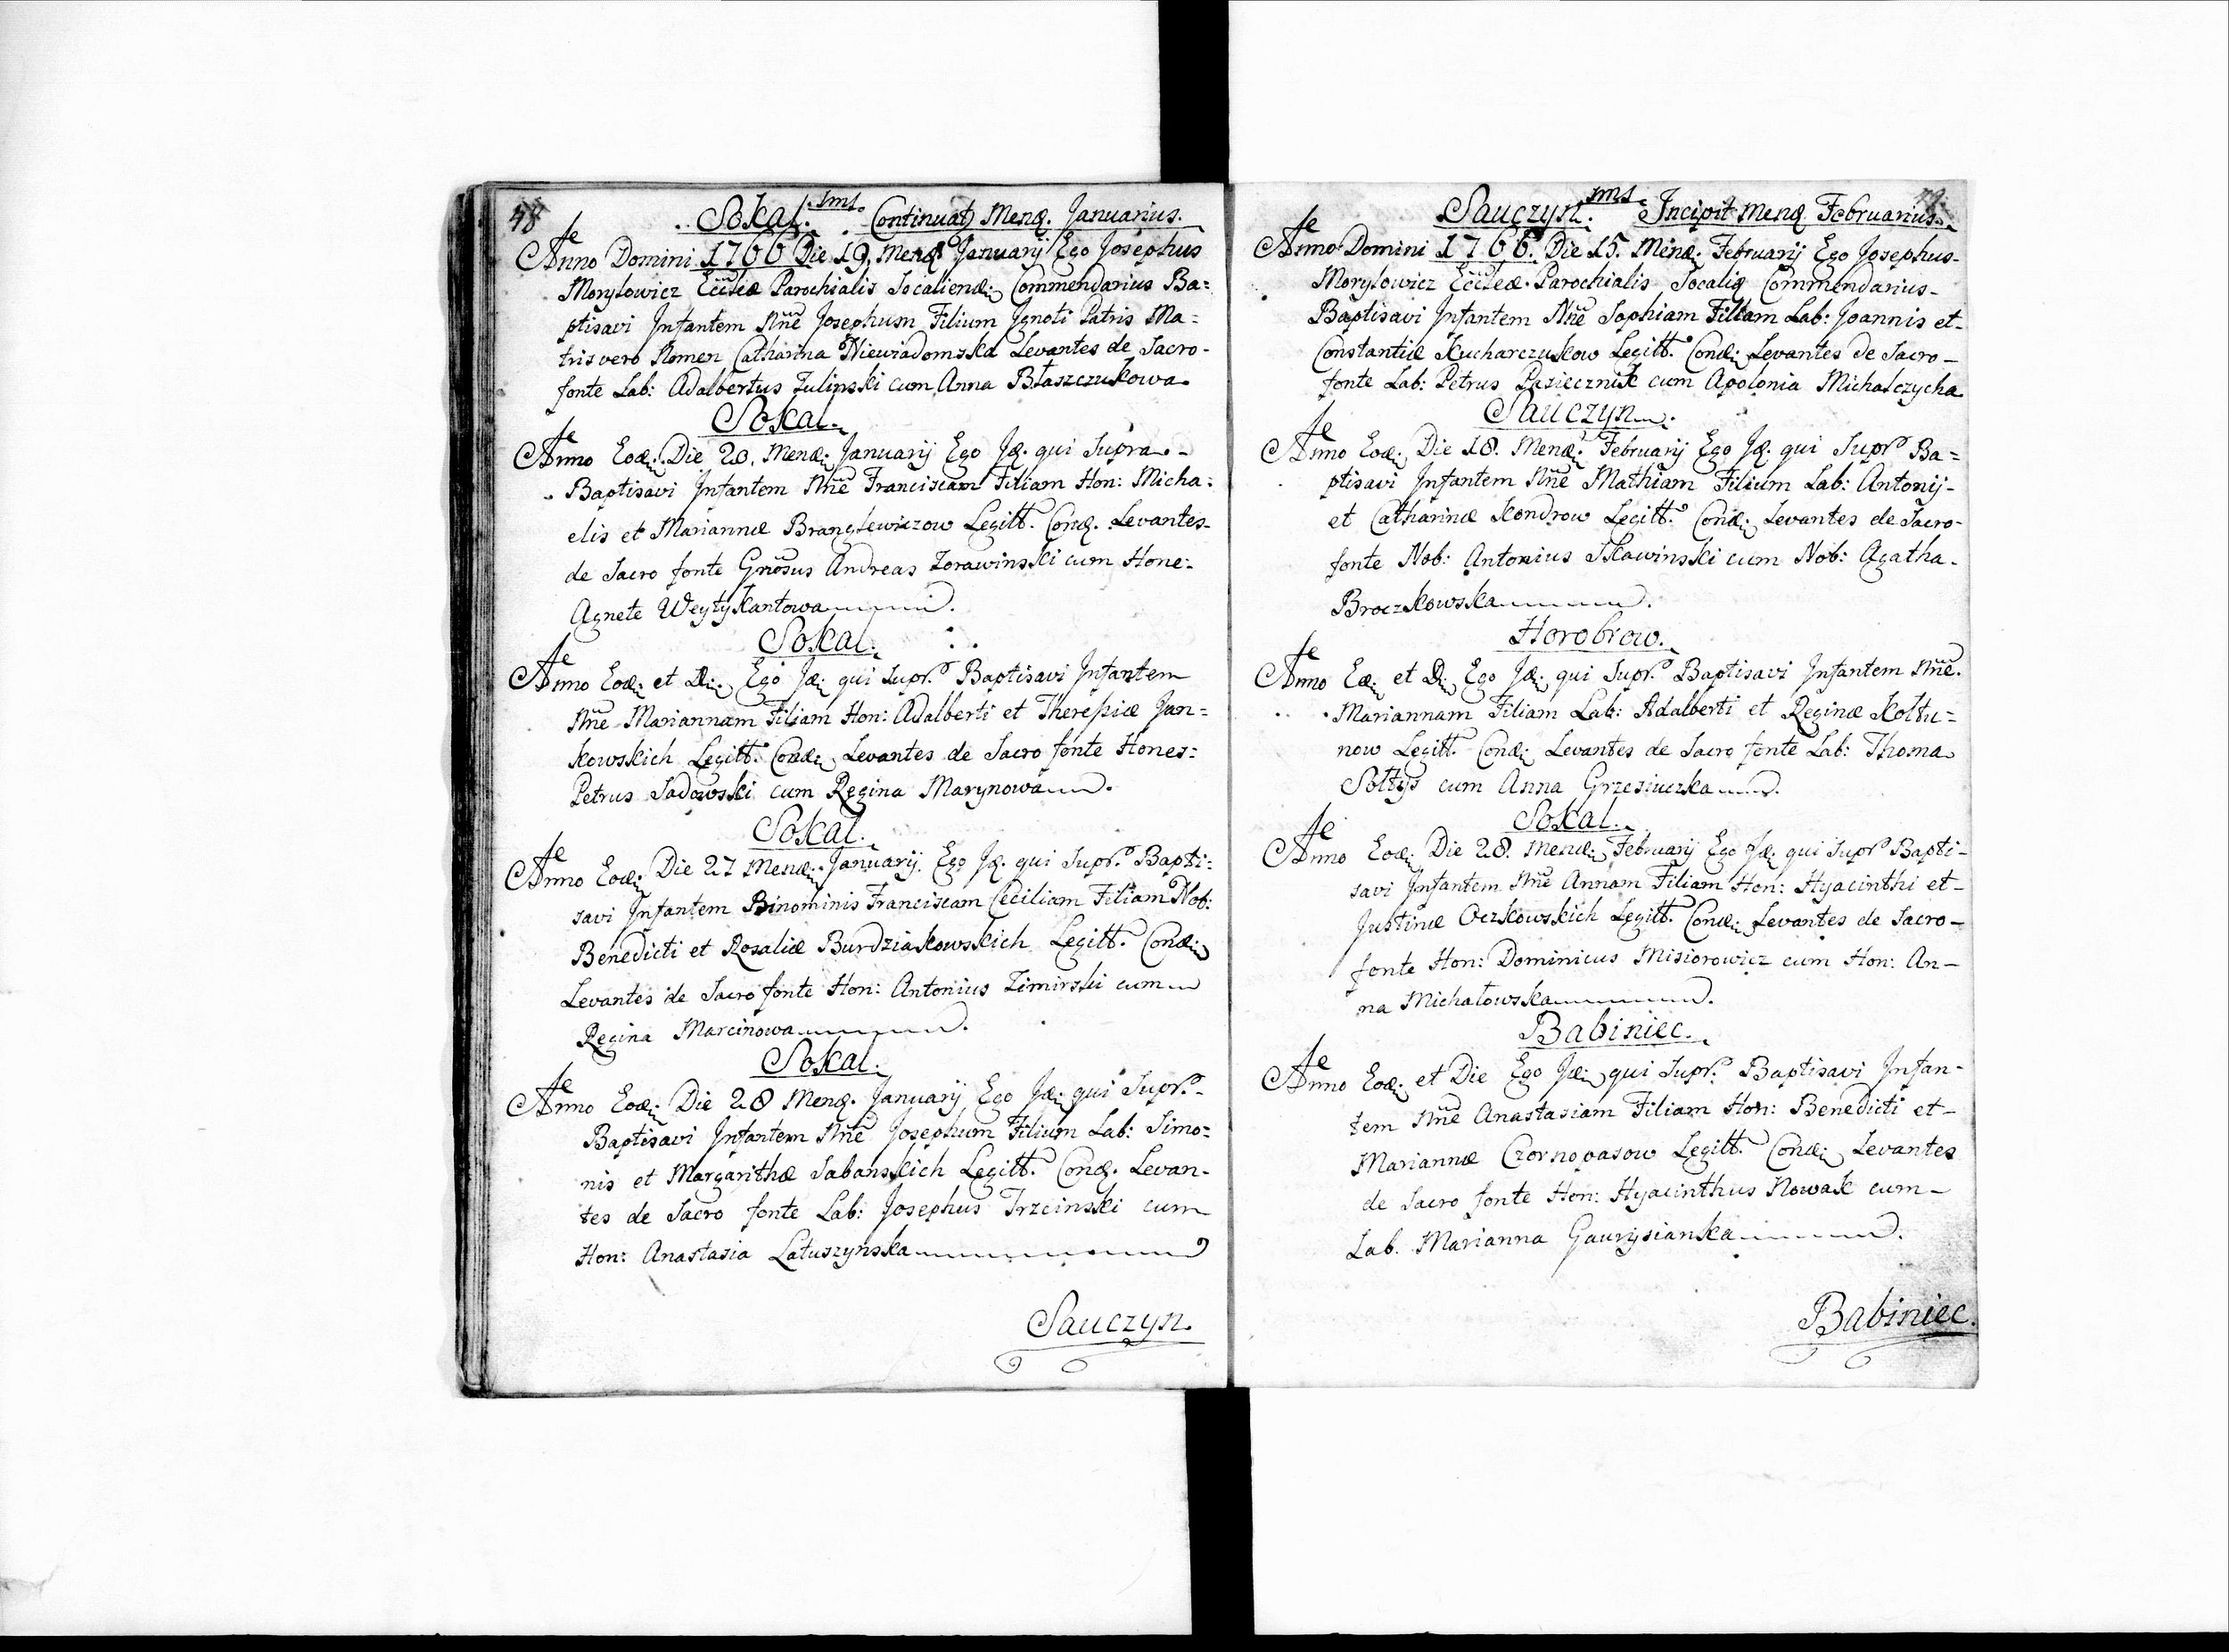 48
Sokal. Continuat Mens. Januarius.
Anno Domini 1766 Die 19. Mens Januarij Ego Josephus
Morylowicz Eccleæ Parochialis Socaliens: Commendarius Ba=
ptisavi Infantem Nne Josephum Filium Ignoti Patris Ma=
tris vero Nomen Catharina Niewiadomska Levantes de Sacro-
fonte Lab: Adalbertus Zulinski cum Anna Błaszczukowa
Sokal.
Anno Eod: Die 20. Mens: Januarij Ego Id. qui Supra-
Baptisavi Infantem Nne Franciscam Filiam Hon: Micha:
elis et Mariannæ Branglewiczow Legitt. Conj. Levantes-
de Sacro fonte Gnosus Andreas Zorawinski cum Hone:
Agnete Weytykantowa.
Sokal.
Anno Eod: et D: Ego Id: qui Supr. Baptisavi Infantem
Nne Mariannam Filiam Hon: Adalberti et Theresiæ Jan=
kowskich Legitt. Conj: Levantes de Sacro fonte Hones:
Petrus Sadowski cum Regina Marynowa.
Sokal.
Anno Eod: Die 27 Mens: Januarij. Ego Id. qui Supr. Bapti:
savi Infantem Binominis Franciscam Ceciliam Filiam Nob:
Benedicti et Rosaliæ Burdziakowskich Legitt. Conj:
Levantes de Sacro fonte Hon: Antonius Zimirski cum
Regina Marcinowa.
Sokal.
Anno Eod: Die 28 Mens. Januarij Ego Id: qui Supr.-
Baptisavi Infantem Nne Josephum Filium Lab: Simo=
nis et Margarithæ Sabanskich Legitt. Conj. Levan-
tes de Sacro fonte Lab: Josephus Trzcinski cum
Hon: Anastasia Latuszynska
Sauczyn.
Sauczyn. Incipit Mens Februarius.
Anno Domini 1766. Die 15. Mens: Februarij Ego Josephus-
Morylowicz Eccleæ Parochialis Socalis Commendarius-
Baptisavi Infantem Nne Sophiam Filiam Lab: Joannis et-
Constantiæ Kucharczukow Legitt. Conj: Levantes de Sacro-
fonte Lab: Petrus Pasiecznik cum Apolonia Michalczycha
Sauczyn.
Anno Eod: Die 18. Mens: Februarij Ego Id. qui Supr Ba=
ptisavi Infantem Nne Mathiam Filium Lab: Antonij-
et Catharinæ Kondrow Legitt. Conj: Levantes de Sacro-
fonte Nob: Antonius Skawinski cum Nob: Agatha-
Broczkowska.
Horobrow.
Anno Eod: et D: Ego Id: qui Supr. Baptisavi Infantem Nne.
Mariannam Filiam Lab: Adalberti et Reginæ Kołtu=
now Legitt. Conj: Levantes de Sacro fonte Lab: Thoma
Sołtys cum Anna Grzesiuczka.
Sokal.
Anno Eod: Die 28. Mens: Februarij Ego Id: qui Supr Bapti-
savi Infantem Nne Annam Filiam Hon: Hyacinthi et-
Justinæ Oczkowskich Legitt. Conj: Levantes de Sacro-
fonte Hon: Dominicus Misiorowicz cum Hon: An-
na Michałowska.
Babiniec.
Anno Eod: et Die Ego Id: qui Supr. Baptisavi Infan-
tem Nne Anastasiam Filiam Hon: Benedicti et-
Mariannæ Czornopasow Legitt. Conj: Levantes
de Sacro fonte Hon: Hyacinthus Nowak cum-
Lab. Marianna Gaurysianska.
Babiniec.